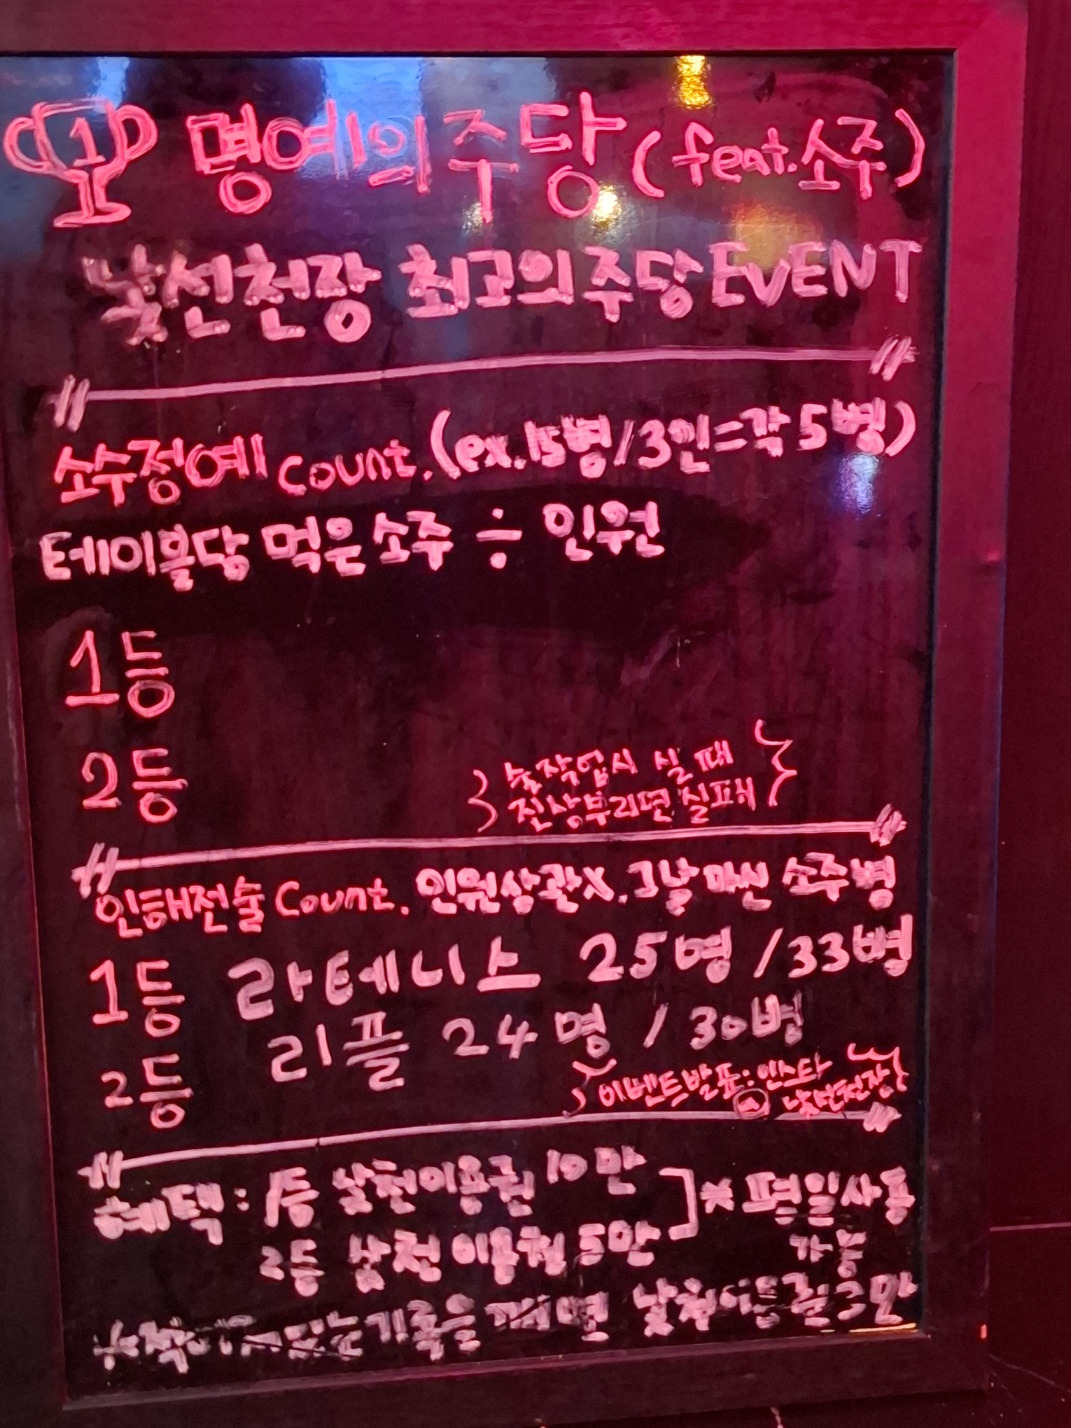 1 명예의 주당 (feat.소주)
낯선천장 최고의 주당 EVENT
소수정예 count. (ex.15병/3인=각 5병)
테이블당 먹은 소주 ÷ 인원
1등
2등
술장업시 실패
진상부리면 실패
인해전술 Count. 인원상관X. 그날 마신 소주병
1등 라테니스 25명 /33병
2등 리플 24명 / 30병
이벤트발표: 인스타 낯선천장
혜택: 1등 낯천이용권 10만
2등 낯천이용권 5만
* 평일사용 가능
기록을 깨면 낯천이용권 3만